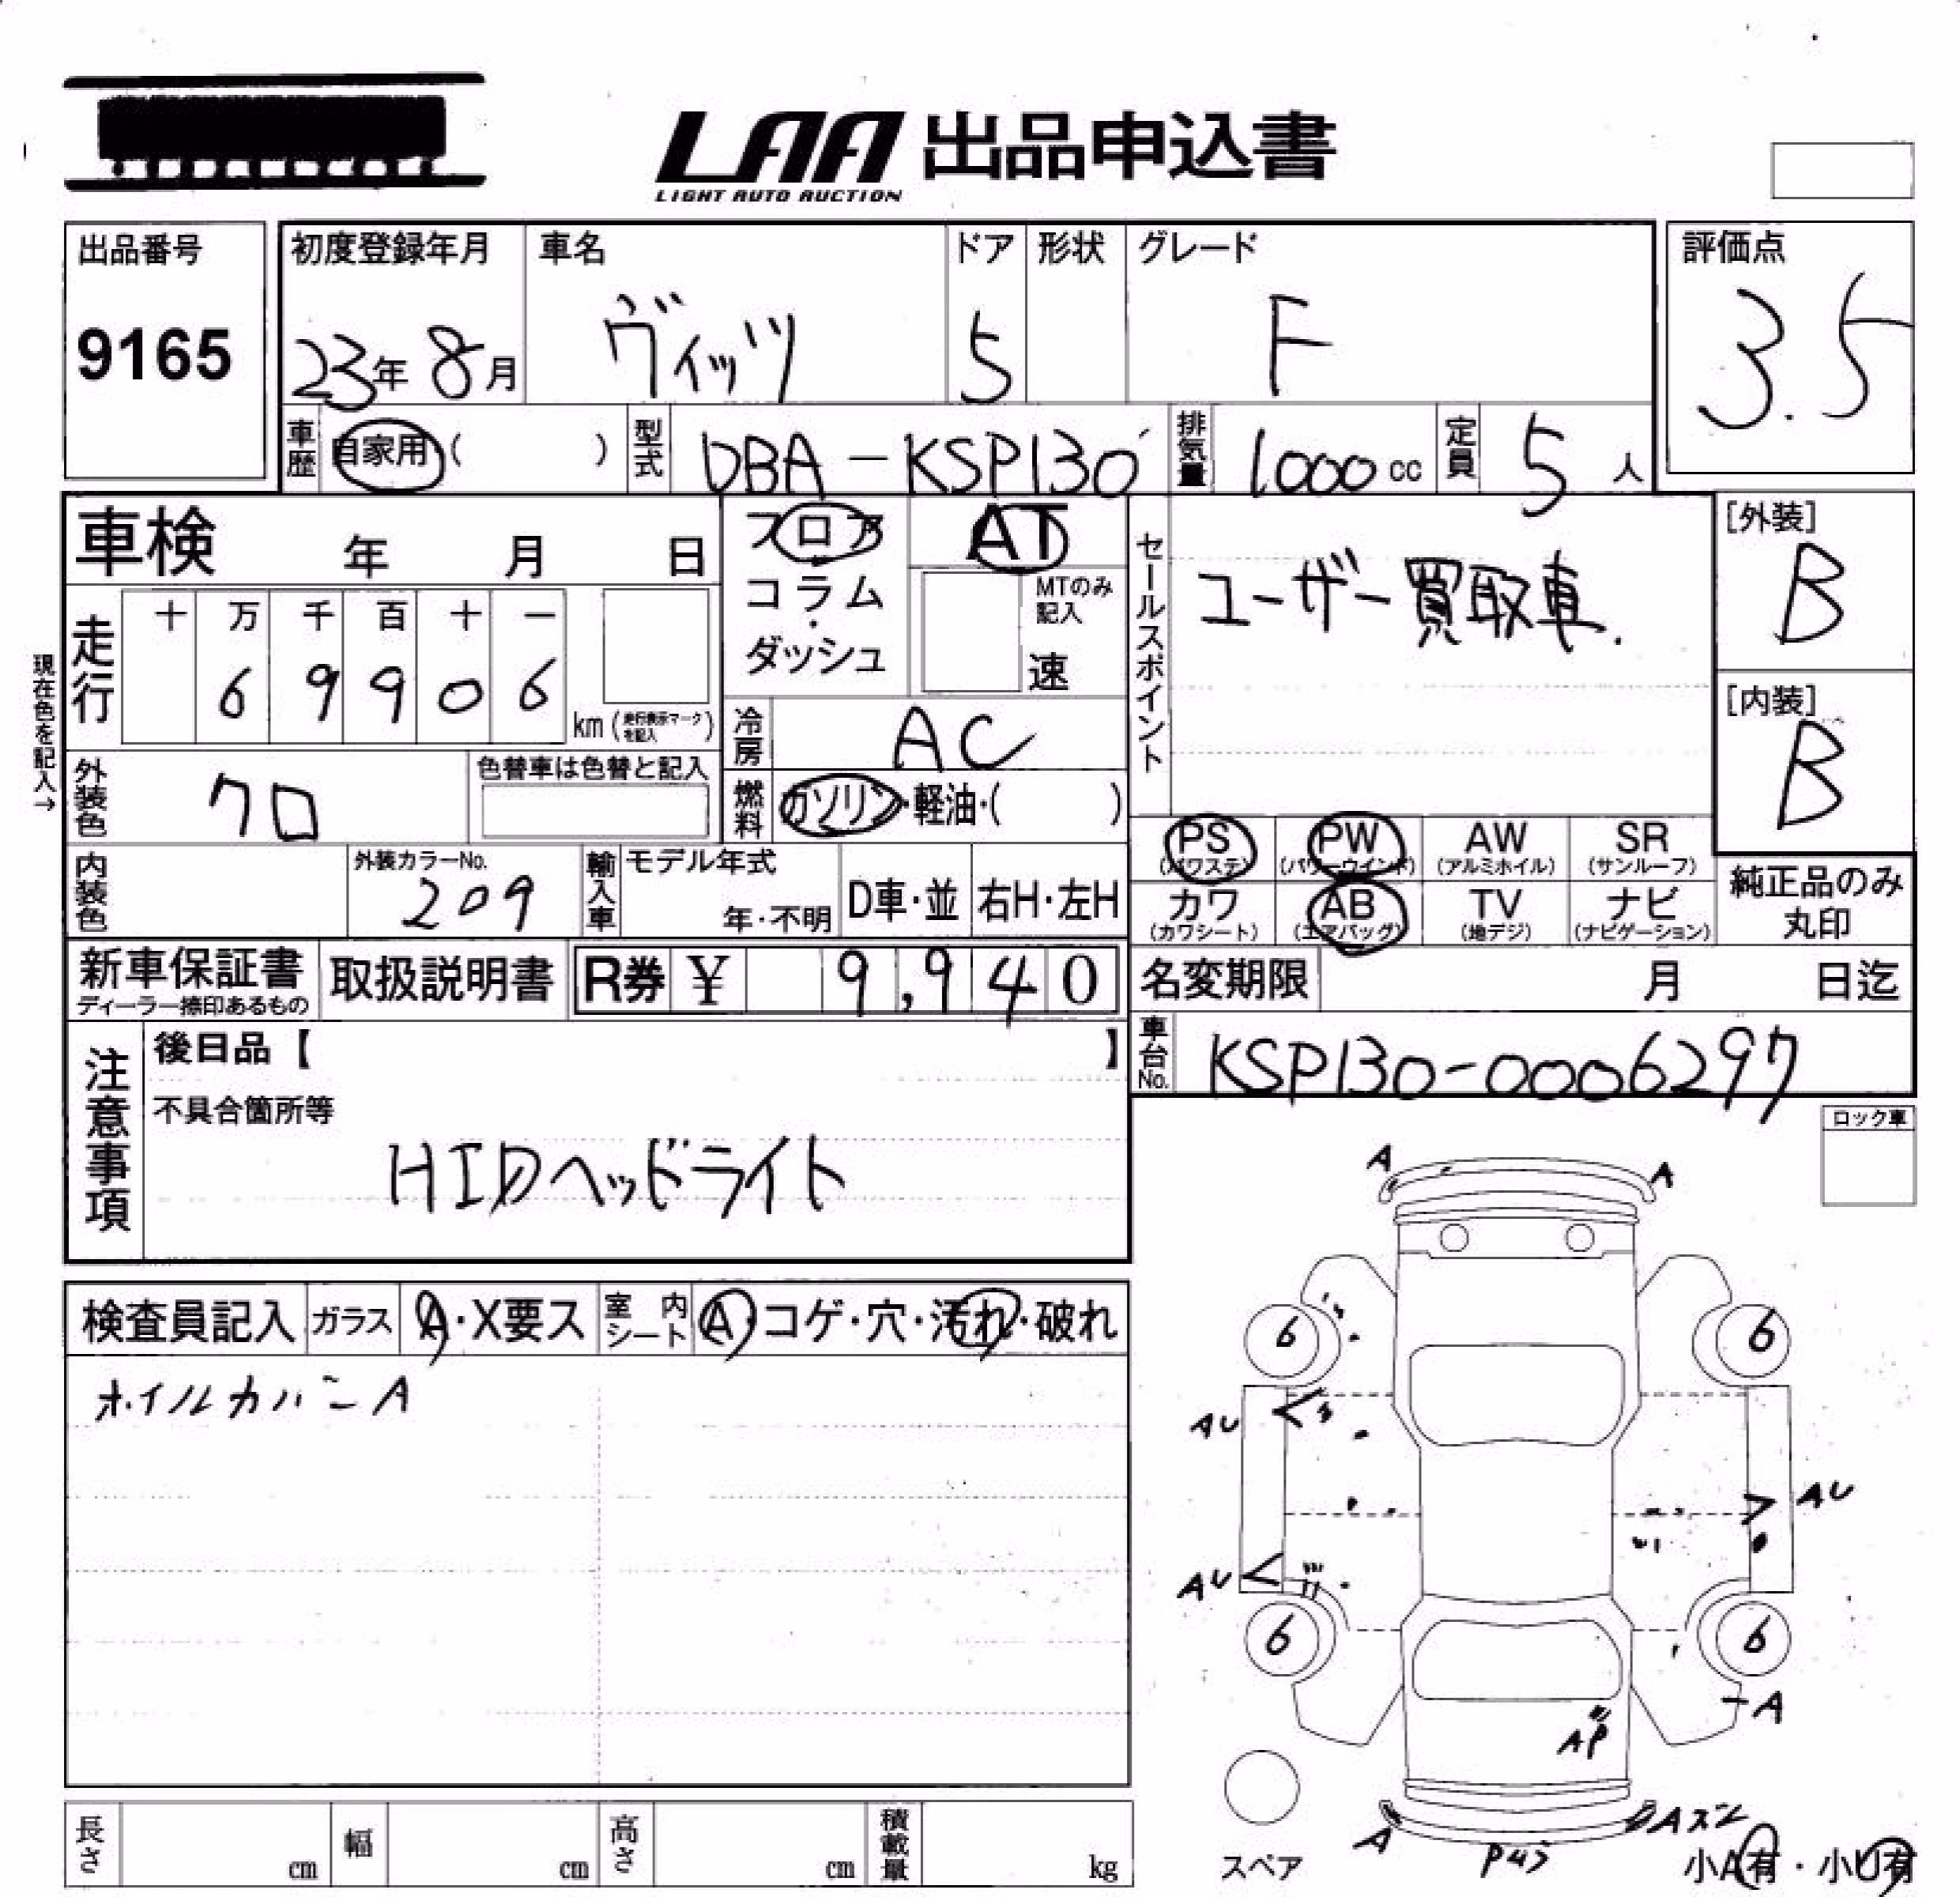 LAA 出品申込書
LIGHT AUTO AUCTION
出品番号
9165
初度登録年月
23年 8月
車名
ヴィッツ
ドア
5
形状
グレード
F
評価点
3.5
車歴 自家用 ( )
型式 DBA-KSP130
排気量 1000 cc
定員 5 人
車検 年 月 日
フロア
コラム
・
ダッシュ
AT
MTのみ
記入
速
セールスポイント
ユーザー買取車.
[外装]
B
[内装]
B
現在色を記入→
走行
十 万 千 百 十 一
6 9 9 0 6
km (走行表示マークを記入)
冷房 AC
外装色 クロ
色替車は色替と記入
燃料 ガソリン・軽油・( )
PS
(パワステ)
PW
(パワーウインド)
AW
(アルミホイル)
SR
(サンルーフ)
内装色
外装カラーNo.
209
輸入車
モデル年式
年・不明
D車・並
右H・左H
カワ
(カワシート)
AB
(エアバッグ)
TV
(地デジ)
ナビ
(ナビゲーション)
純正品のみ
丸印
新車保証書
ディーラー捺印あるもの
取扱説明書
R券 ¥ 9,940
名変期限 月 日迄
注意事項
後日品【 】
不具合箇所等
HIDヘッドライト
車台No. KSP130-0006297
ロック車
検査員記入
ガラス A・X要ス
室内シート A・コゲ・穴・汚れ・破れ
ホイルカバーA
A A
6 6
AU
AU
AU
6 6
A
AP
A
Aズレ
スペア
小A有・小U有
長さ cm
幅 cm
高さ cm
積載量 kg